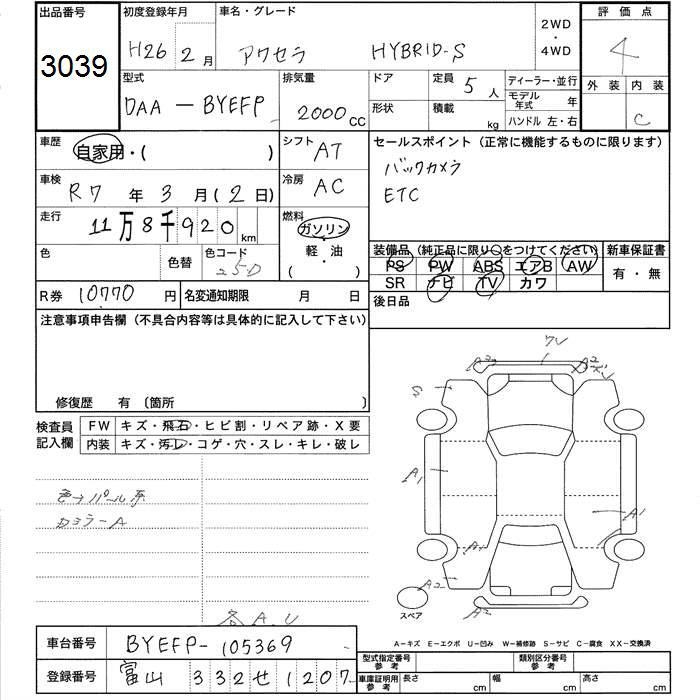 出品番号 初度登録年月 車名・グレード 2WD・4WD 評価点
3039 H26 2月 アクセラ HYBRID-S 4
型式 排気量 ドア 定員 5人 ディーラー・並行 外装 内装
DAA - BYEFP 2000cc 形状 積載 kg モデル年式 年 C
ハンドル 左・右
車歴 自家用・( ) シフト AT セールスポイント(正常に機能するものに限ります)
車検 R7年3月(2日) 冷房 AC バックカメラ
ETC
走行 11万8千920km 燃料 ガソリン・軽油( )
色 色替 色コード 25D
装備品(純正品に限り○をつけてください) 新車保証書
PS PW ABS エアB AW 有・無
SR ナビ TV カワ
R券 10770円 名変通知期限 月 日 後日品
注意事項申告欄(不具合内容等は具体的に記入して下さい)
修復歴 有〔箇所 〕
検査員記入欄 FW キズ・飛石・ヒビ割・リペア跡・X要
内装 キズ・汚レ・コゲ・穴・スレ・キレ・破レ
色→パール系
カミラーA
各A.U
A2 A2
S
A1 A1
A1
A2 A2
スペア
A-キズ E-エクボ U-凹み W-補修跡 S-サビ C-腐食 XX-交換済
車台番号 BYEFP-105369 型式指定番号 参考 類別区分番号 参考
登録番号 富山 332 せ 1207 車庫証明用 参考 長さ cm 幅 cm 高さ cm